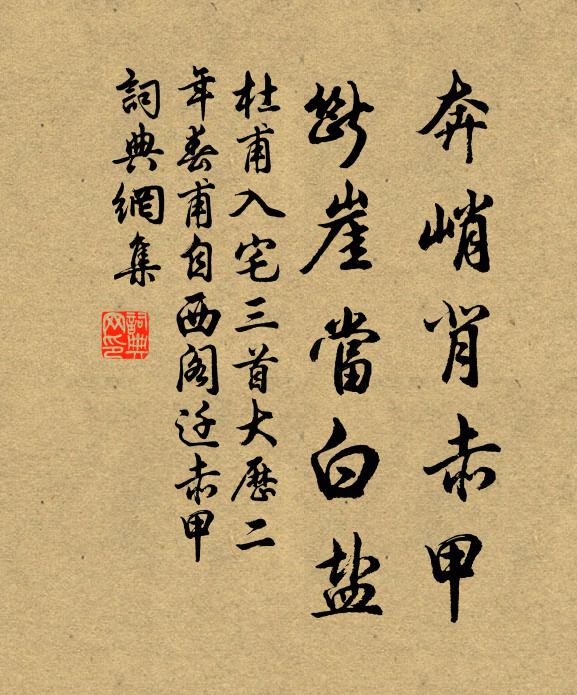 奔峭背赤甲
斷崖當白盐
杜甫入宅三首大歷二
年春甫自西阁迁赤甲
詞典網集
詞典网印